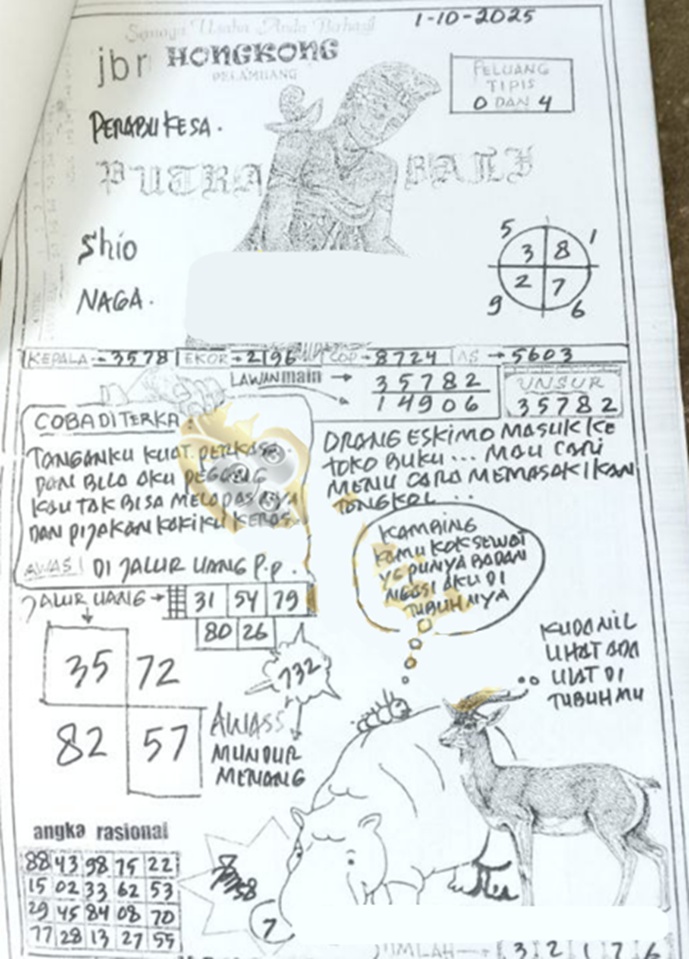 Semoga Usaha Anda Berhasil
1-10-2025
jbr HONGKONG
PELAMUANG
PELUANG
TIPIS
0 DAN 4
PERABU KESA.
PUTRA BALI
Shio
NAGA.
5 1
3 8
2 7
9 6
KEPALA → 3578 EKOR → 2196 COP → 8724 AS → 5603
LAWAN main → 35782
14906
UNSUR
35782
COBA DI TERKA!
TANGANKU KUAT PERKASA.
DAN BILA AKU PEGANG
KAU TAK BISA MELAPASNYA
DAN PIJAKAN KAKIKU KERAS.
AWAS! DI JALUR UANG P.P.
ORANG ESKIMO MASUK KE
TOKO BUKU... MAU CARI
MENU CARA MEMASAK IKAN
TONGKOL...
KAMBING
KAMU KOK SEWOT
YG PUNYA BADAN
NGASI AKU DI
TUBUHNYA
JALUR UANG → 31 54 79
80 26
KUDANIL
LIHAT ADA
ULAT DI
TUBUHMU
35 72
82 57
732
AWASS
MUNDUR
MENANG
angka rasional
88 43 98 75 22
15 02 33 62 53
29 45 84 08 70
77 28 13 27 55
7
JUMLAH → 3 2 1 7 6